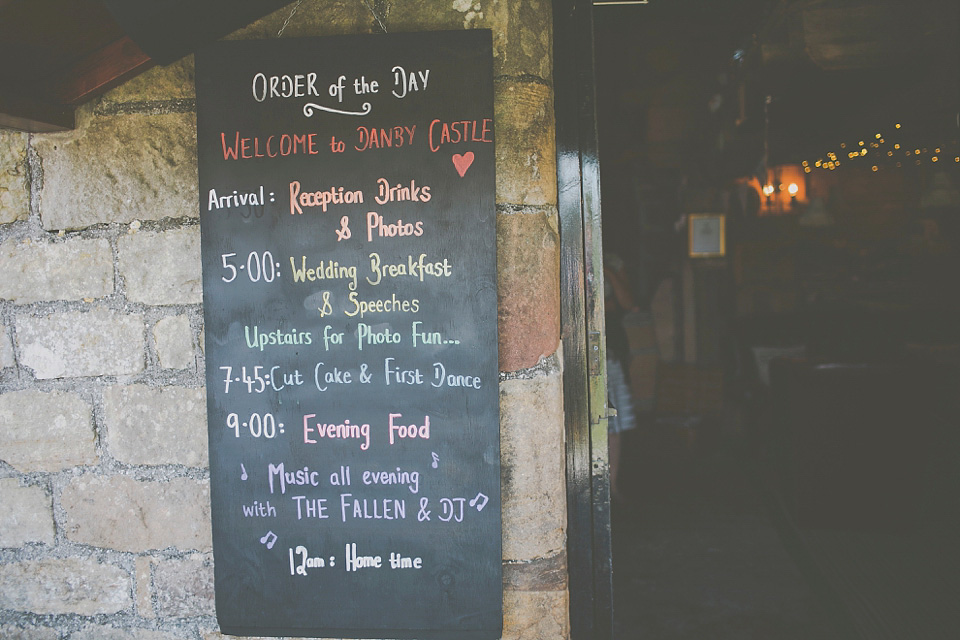 ORDER of the DAY
WELCOME to DANBY CASTLE
Arrival: Reception Drinks
& Photos
5.00: Wedding Breakfast
& Speeches
Upstairs for Photo Fun...
7.45: Cut Cake & First Dance
9.00: Evening Food
Music all evening
with THE FALLEN & DJ
12am: Home time